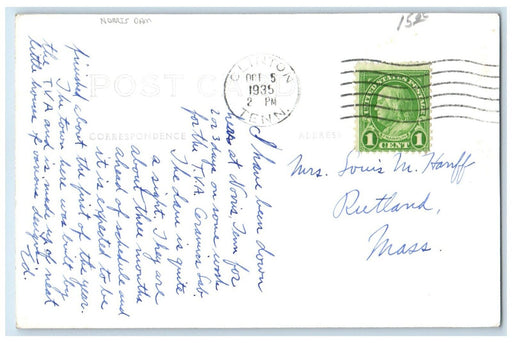 NORRIS DAM
15.00
POST CARD
CORRESPONDENCE
ADDRESS
CLINTON
OCT 5
1935
2 PM
TENN.
UNITED STATES POSTAGE
1 1
CENT
Mrs. Louis M. Hanff
Rutland,
Mass.
I have been down
here at Norris, Tenn for
2 or 3 days on some work
for the TVA Ceramic Lab.
The dam is quite
a sight. They are
about three months
ahead of schedule and
it is expected to be
finished about the first of the year.
The town here was built by
the TVA and is made up of neat
little houses of various designs
Ed.